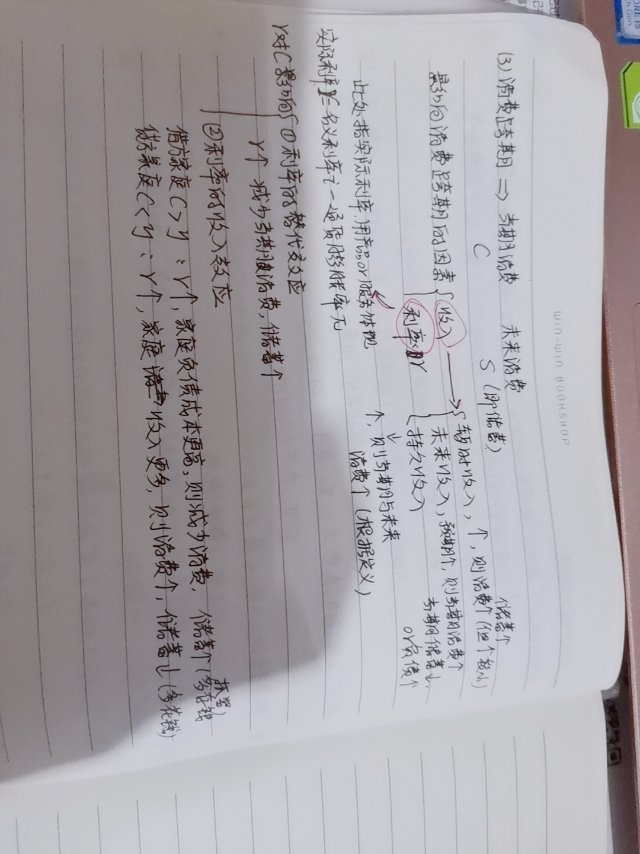 WIN-WIN BOOKSHOP
(3) 消费跨期 ⇒ 当期消费 未来消费
C S (即储蓄)
影响消费跨期的因素 { 收入 → { 暂时收入,↑,则消费↑(但↑较小) 储蓄↑
利率r 未来收入,预期↑,则当期消费↑ 当期储蓄↓ or负债↑
持久收入 ↑,则当期与未来消费↑(根据定义)
此处指实际利率,用产品or服务体现
实际利率r=名义利率i-通货膨胀率π
r对C影响 { ①利率的替代效应
r↑ 减少当期消费,储蓄↑
②利率的收入效应
借方家庭C>y:r↑,家庭负债成本更高,则减少消费,储蓄↑(多存钱
贷方家庭C<y:r↑,家庭收入更多,则消费↑,储蓄↓(少存钱)